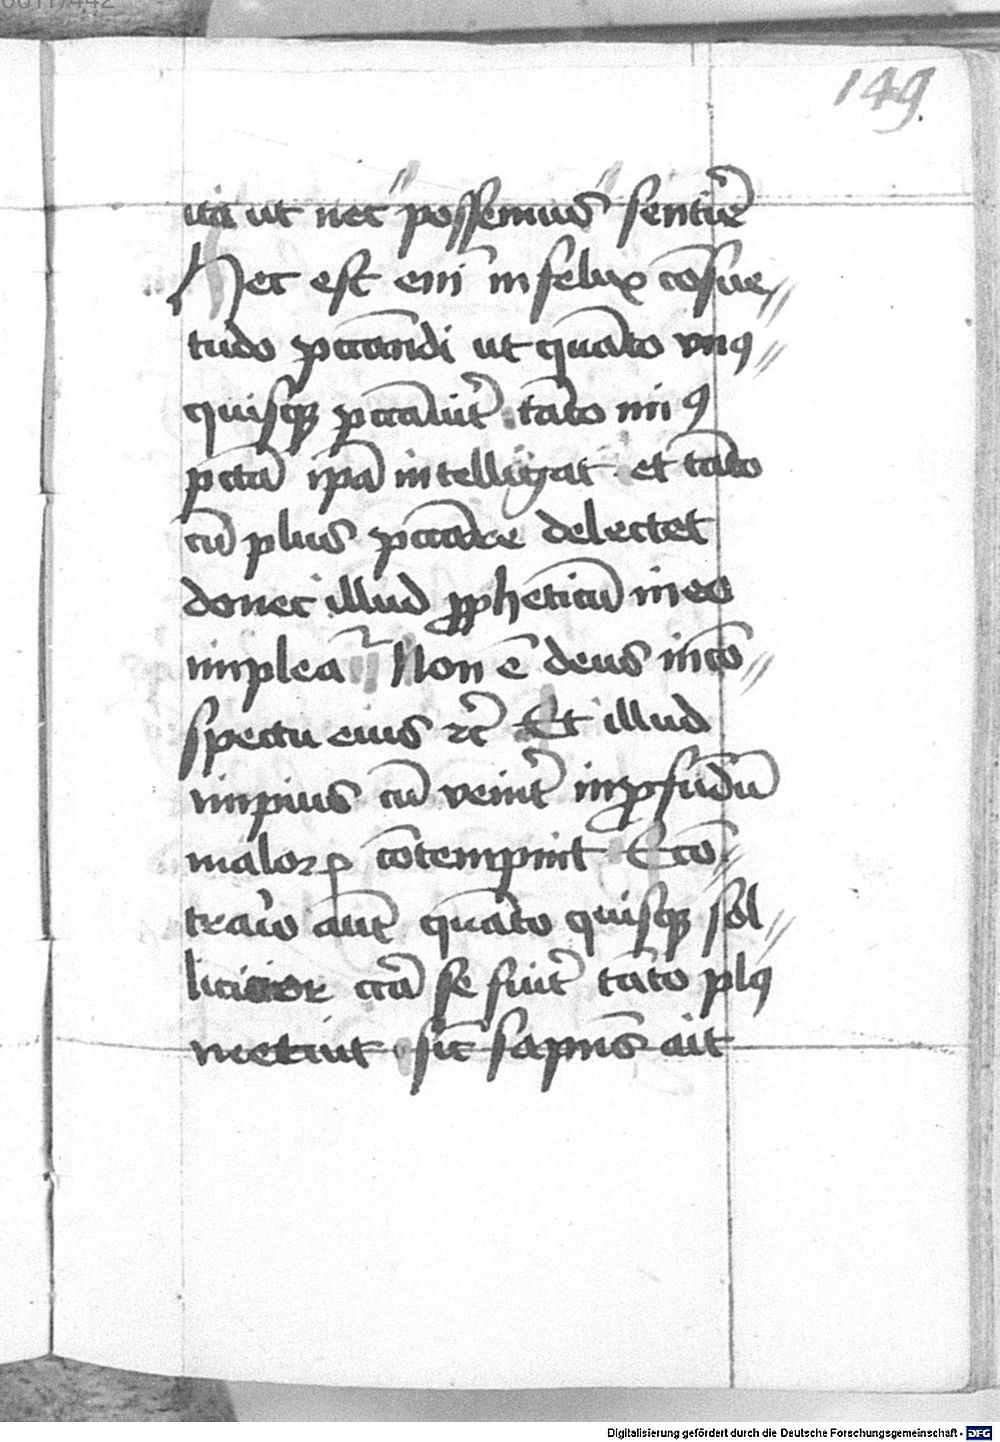 149.
ita ut nec possemus sentire
Hec est eni͂ infelix co͂sue
tudo pcca͂ndi ut qua͂to vnꝰ
quisqꝫ pcca͂uit͛ ta͂to minꝰ
pcta͂ ip͂a intelligat et ta͂to
cu͂ plus pcca͂re delectet
donec illud ꝓpheticu͂ in eo
implea Non e͂ deus in co͂
spectu eius ⁊c͂ Et illud
impius cu͂ venit͛ in ꝓfu͂du͂
maloꝝ co͂tempnit Eco͂
trario aut͂ qua͂to quisqꝫ sol
licitior cc͂a se fuit͛ ta͂to plꝰ
metuit sic͂ sapie͂s ait
Digitalisierung gefördert durch die Deutsche Forschungsgemeinschaft - DFG